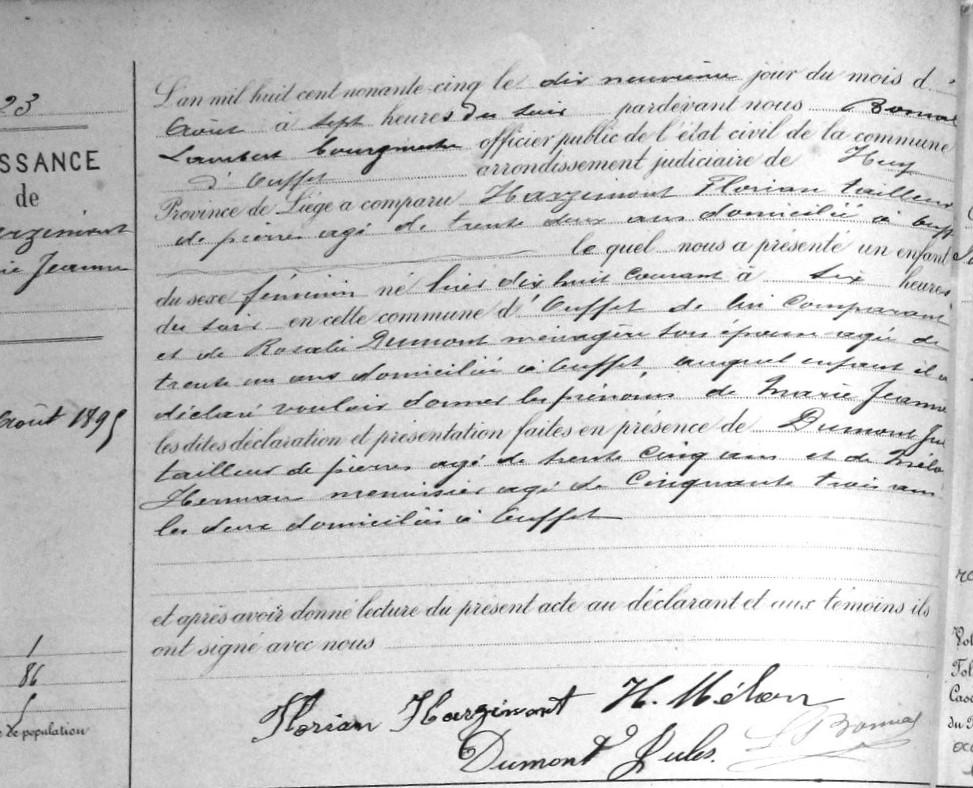 23
SSANCE
de
erzimont
ie Jeanne
Août 1895
1
86
de population
L'an mil huit cent nonante-cinq le dix neuvième jour du mois d'
Août à sept heures du soir pardevant nous Bonnal
Lambert bourgmestre officier public de l'état civil de la commune
d'Ouffet arrondissement judiciaire de Huy
Province de Liége a comparu Harzimont Florian tailleur
de pierres agé de trente deux ans domicilié à Ouff
le quel nous a présenté un enfant
du sexe féminin né hier dix huit courant à six heures
du soir en cette commune d'Ouffet de lui comparant
et de Rosalie Dumont ménagère son épouse agée de
trente un ans domiciliée à Ouffet, auquel enfant il a
déclaré vouloir donner les prénoms de Marie Jeanne
les dites déclaration et présentation faites en présence de Dumont Ju
tailleur de pierres agé de trente cinq ans et de Mélo
Herman menuisier agé de Cinquante trois ans
les deux domiciliés à Ouffet
et après avoir donné lecture du présent acte au déclarant et aux témoins ils
ont signé avec nous
Florian Harzimont H. Mélon
Dumont Jules. L Bonnal
Vol
Fol
Case
du R